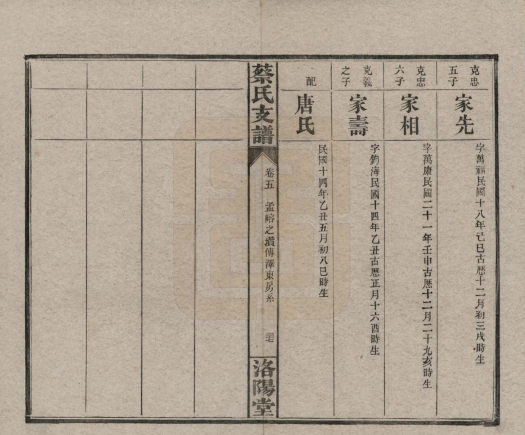 克忠五子
家先
字萬福民國十八年己巳古曆十二月初三戌時生
克忠六子
家相
字萬康民國二十一年壬申古曆十二月二十九亥時生
克義之子
家壽
字鈞海民國十四年乙丑古曆正月十六酉時生
配
唐氏
民國十四年乙丑五月初八巳時生
蔡氏支譜
卷五 孟
之
傳澤東房系
洛陽堂